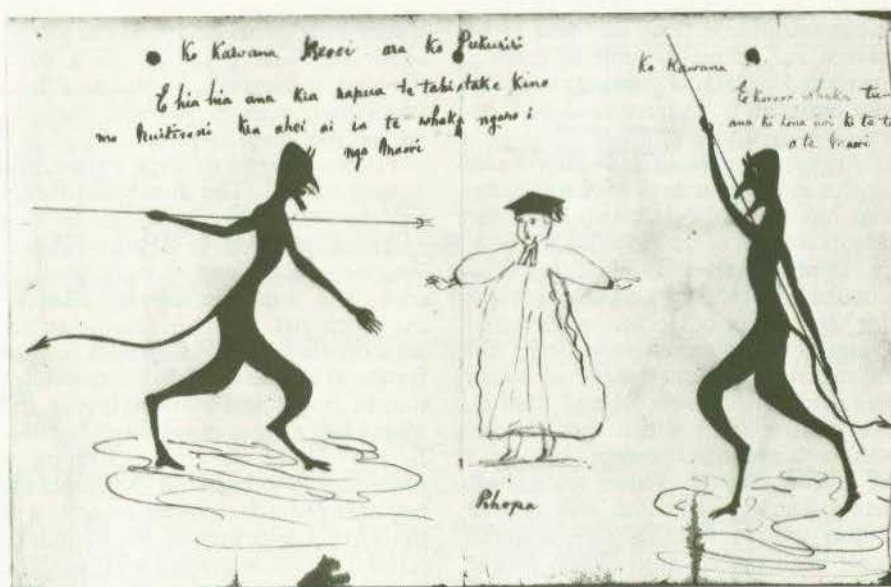 Ko Kawana Kerei ara ko Pukuriri
E hia hia ana kia napua te tahi take Kino
mo Huitireni Kia ahei ai ia te whaka ngaro i
nga Maori
Ko Kawana
E korero whaka
ana ki tona ki te
o te Maori
Pihopa